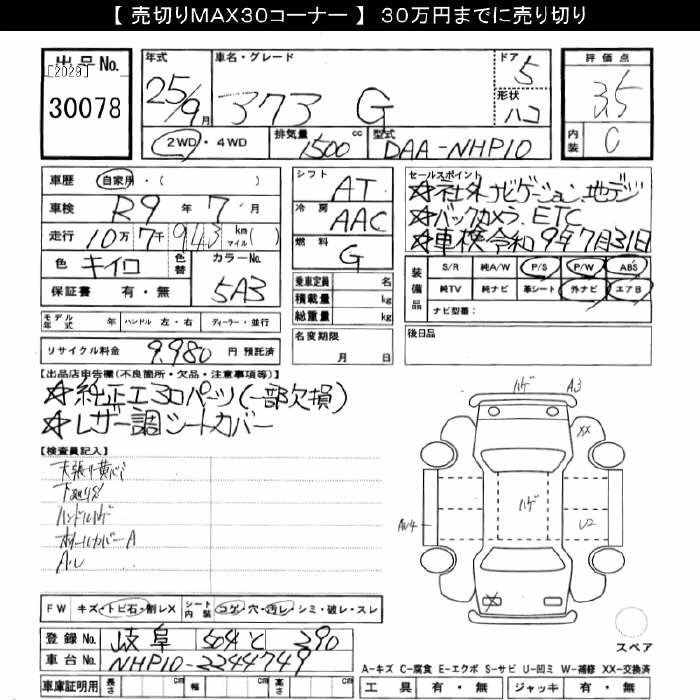 【 売切りMAX30コーナー 】 30万円までに売り切り
出品No.
[2029]
30078
年式 25/9月
車名・グレード 373 G
ドア 5
形状 ハコ
2WD・4WD
排気量 1500 cc
型式 DAA-NHP10
評価点 3.5
内装 C
車歴 自家用・( )
車検 R9年 7月
走行 10万7千943 km マイル( )
色 キイロ 色替 カラーNo. 5A3
保証書 有・無
シフト AT
冷房 AAC
燃料 G
乗車定員 名
積載量 kg
総重量 kg
名変期限 月 日
セールスポイント
☆社外ナビゲーション.地デジ
☆バックカメラ.ETC
☆車検令和9年7月31日
装備品 S/R 純A/W P/S P/W ABS
純TV 純ナビ 革シート 外ナビ エアB
ナビ型番:
後日品
モデル年式 年 ハンドル 左・右 ディーラー・並行
リサイクル料金 9,980 円 預託済
【出品店申告欄(不良箇所・欠品・注意事項等)】
☆純正エアロパーツ(一部欠損)
☆レザー調シートカバー
【検査員記入】
ハンドルハゲ
ホイールカバーA
ハゲ A3
XX
ハゲ
U2
FW キズ・トビ石・削レX シート内装 コゲ・穴・汚レ・シミ・破レ・スレ
登録No. 岐阜 504 と 290
車台No. NHP10-2244749
車庫証明用 長さ cm 幅 cm 高さ cm
スペア
A-キズ C-腐食 E-エクボ S-サビ U-凹ミ W-補修 XX-交換済
工具 有・無 ジャッキ 有・無